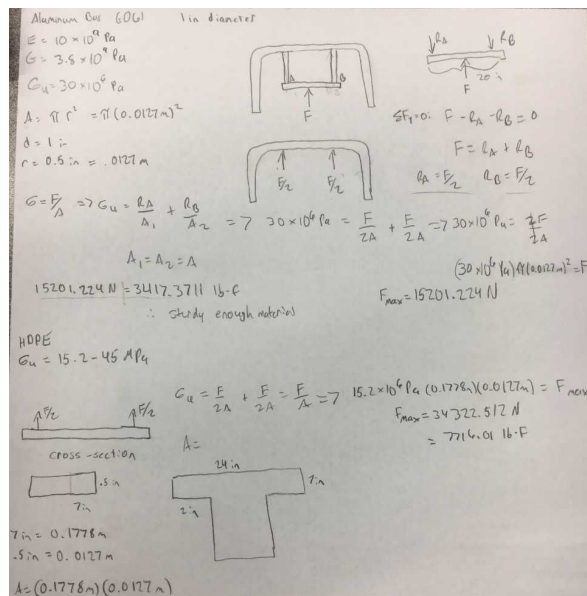 Aluminum Bar 6061 1 in diameter
E = 10 × 10⁹ Pa
G = 3.5 × 10⁹ Pa
σu = 30 × 10⁶ Pa
A = π r² = π(0.0127m)²
d = 1 in
r = 0.5 in = .0127 m
A B
F
F/2 F/2
RA RB
20 in
F
ΣFy=0: F - RA - RB = 0
F = RA + RB
RA = F/2 RB = F/2
σ = F/A => σu = RA/A1 + RB/A2 => 30×10⁶ Pa = F/2A + F/2A => 30×10⁶ Pa = 2F/2A
A1 = A2 = A
(30×10⁶ Pa) π(0.0127m)² = F
Fmax = 15201.224 N
15201.224 N = 3417.3711 lb-f
∴ sturdy enough material
HDPE
σu = 15.2 - 45 MPa
σu = F/2A + F/2A = F/A => 15.2×10⁶ Pa (0.1778m)(0.0127m) = Fmax
Fmax = 34322.512 N
= 7716.01 lb-F
F/2 F/2
cross-section
.5 in
7 in
A =
24 in
7 in
2 in
7 in = 0.1778 m
.5 in = 0.0127 m
A = (0.1778m)(0.0127m)